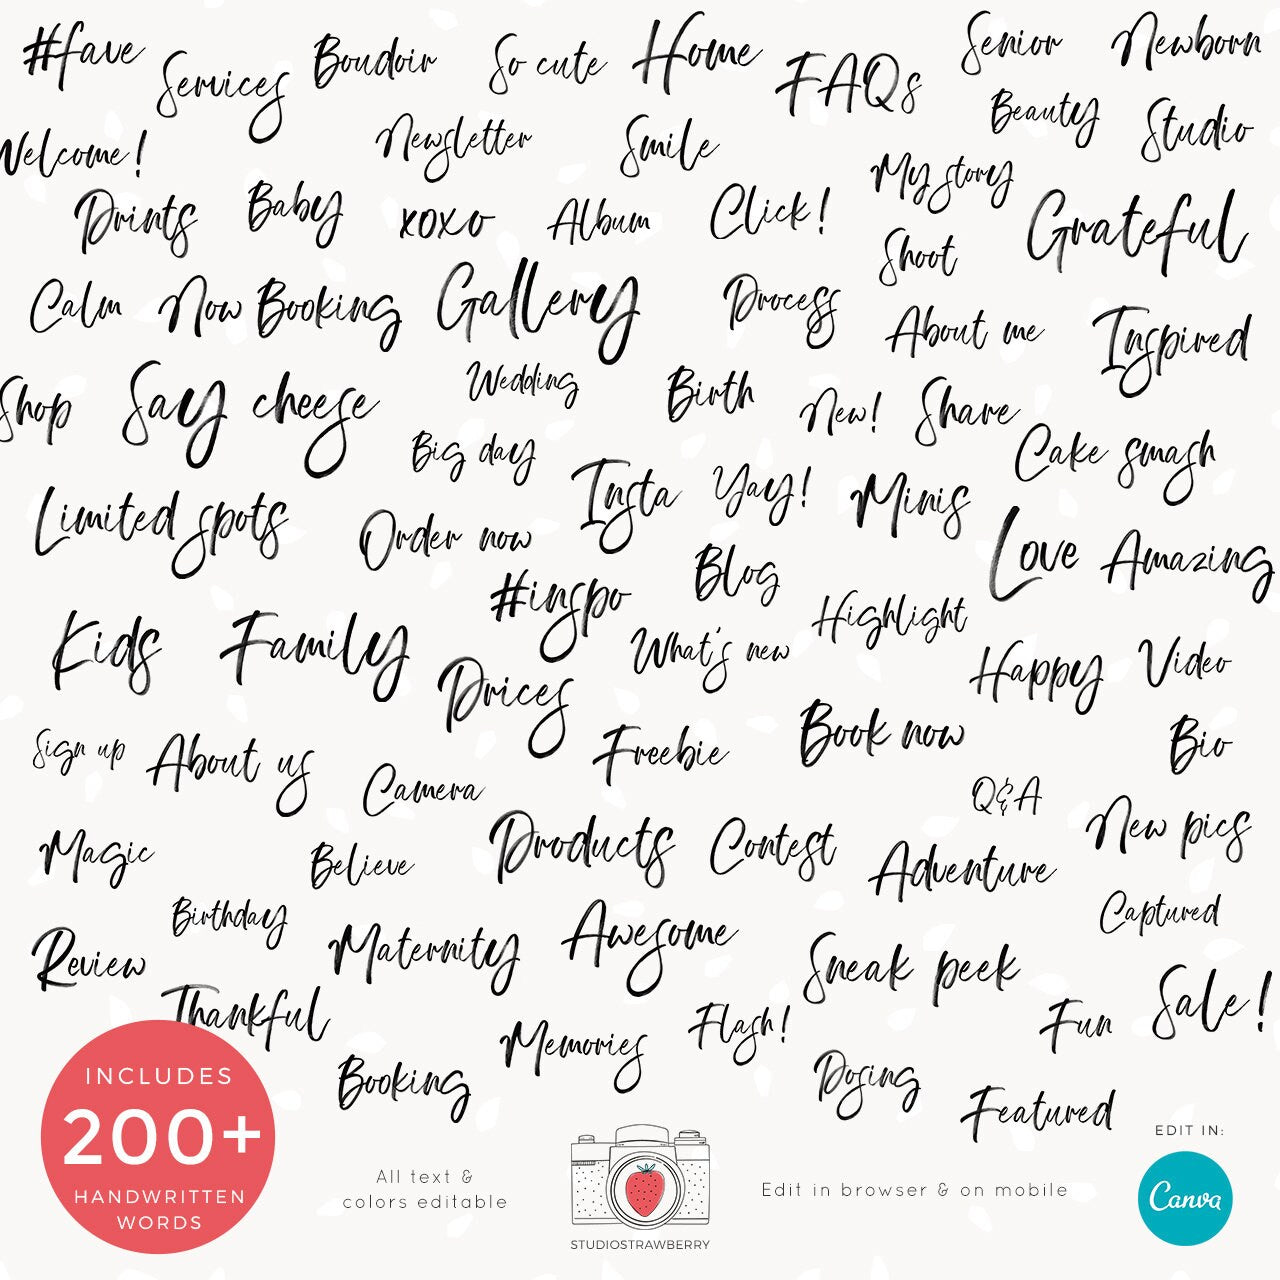 #fave
Services
Boudoir
So cute
Home
FAQs
Senior
Newborn
Welcome!
Newsletter
Smile
Beauty
Studio
Prints
Baby
xoxo
Album
Click!
My story
Shoot
Grateful
Calm
Now Booking
Gallery
Process
About me
Inspired
Shop
Say cheese
Wedding
Birth
New!
Share
Big day
Cake smash
Limited spots
Order now
Insta
Yay!
Minis
Love
Amazing
#inspo
Blog
Highlight
Kids
Family
Prices
What's new
Happy
Video
Sign up
About us
Camera
Freebie
Book now
Bio
Q&A
New pics
Magic
Believe
Products
Contest
Adventure
Captured
Birthday
Review
Maternity
Awesome
Sneak peek
Sale!
Thankful
Memories
Flash!
Fun
Booking
Posing
Featured
INCLUDES
200+
HANDWRITTEN
WORDS
All text &
colors editable
STUDIOSTRAWBERRY
Edit in browser & on mobile
EDIT IN:
Canva